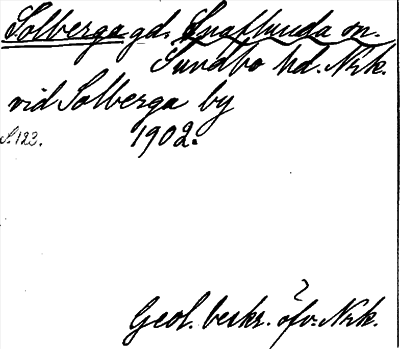 Solberga gd. Snaflunda sn.
Sundbo hd. Nrk.
vid Solberga by
S. 123. 1902.
Geol. beskr. öfv. Nrk.